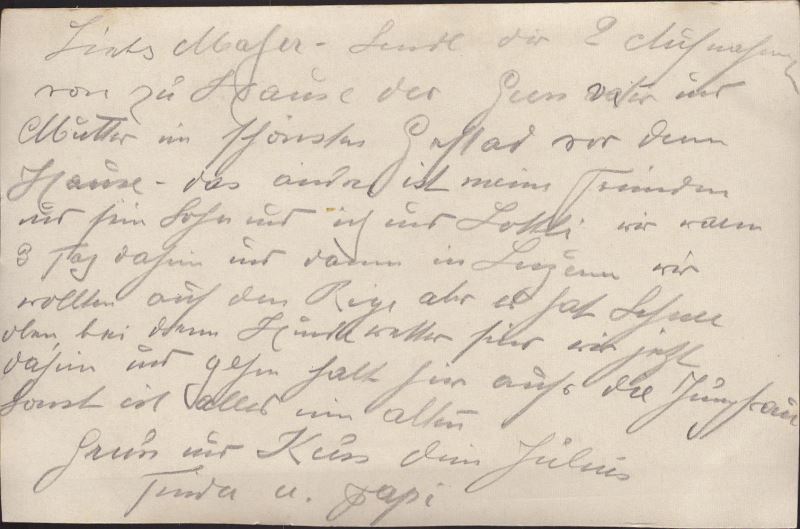 Liebs - Sende dir 2 Aufnahmen
von zu Hause der Grossvater und
Mutter im schönsten Gstaad vor dem
Hause - das andre ist meine Freundin
und sein Sohn und ich und Lotti wir waren
3 Tag daheim und dann in Luzern wir
wollten auf den Rigi aber es hat Schnee
oben, bei dem Hundewetter sind wir jetzt
daheim und gehen halt hier auf die Jungfrau
Sonst ist alles im alten
Gruss und Kuss dein Julius
u. Papi